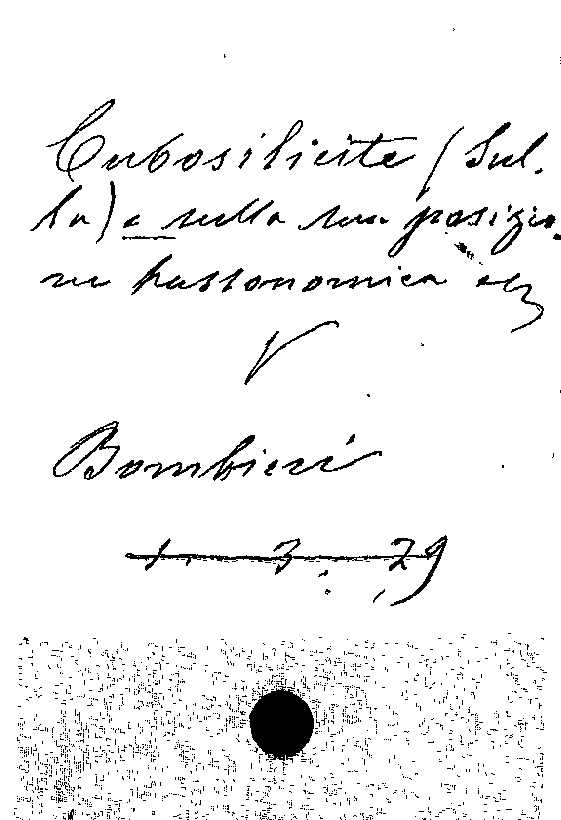 Cubosilicite (Sul.
la) e sulla sua posizio.
ne tassonomica ecc
V
Bombicci
1. 3. 29